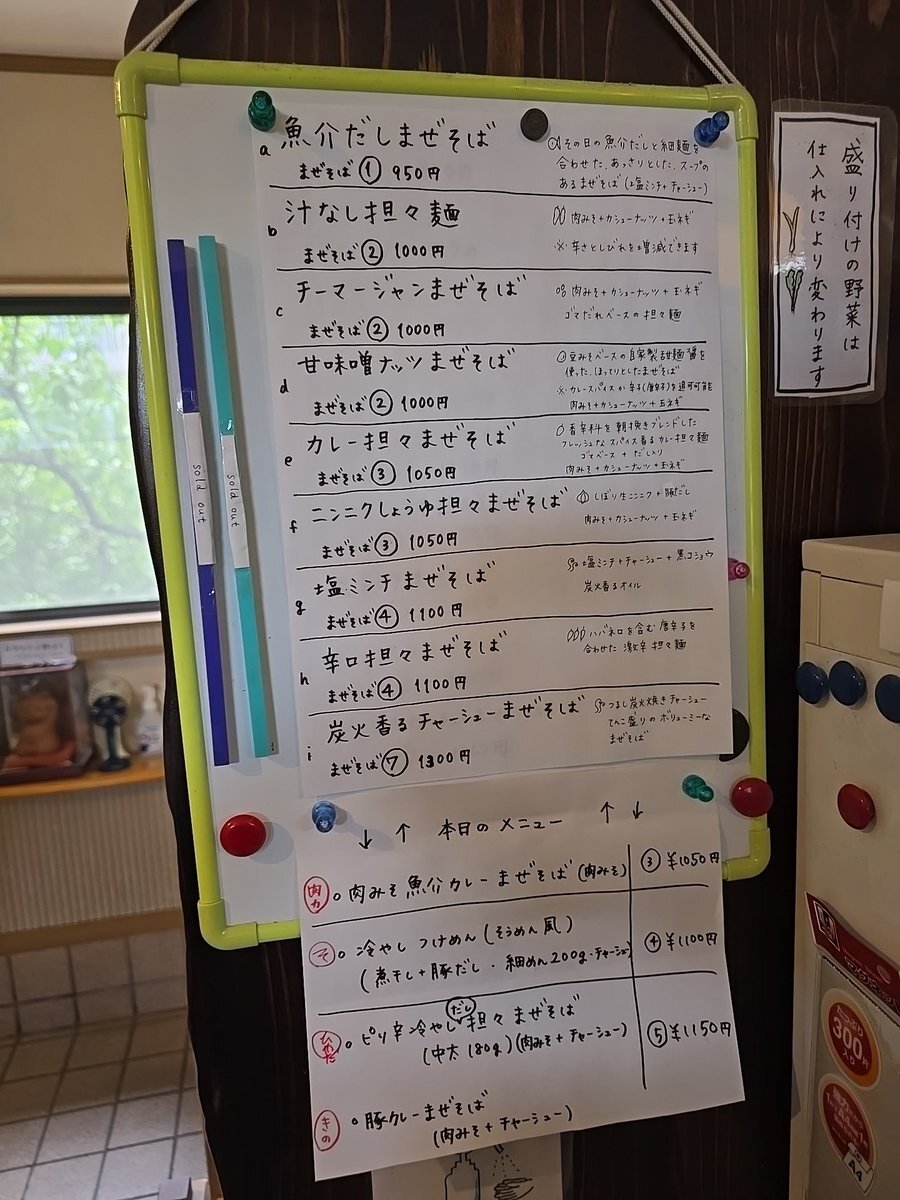 a 魚介だしまぜそば
まぜそば ① 950円
その日の魚介だしと細麺を
合わせた、あっさりとした、スープの
あるまぜそば(塩ミンチ+チャーシュー)
b 汁なし担々麺
まぜそば ② 1000円
肉みそ+カシューナッツ+玉ネギ
※辛さとしびれを増減できます
c チーマージャンまぜそば
まぜそば ② 1000円
肉みそ+カシューナッツ+玉ネギ
ゴマだれベースの担々麺
d 甘味噌ナッツまぜそば
まぜそば ② 1000円
豆みそベースの自家製甜麺醤を
使った、ぽってりとしたまぜそば
※カレースパイスか辛子(唐辛子)を追可可能
肉みそ+カシューナッツ+玉ネギ
e カレー担々まぜそば
まぜそば ③ 1050円
香辛料を朝挽きブレンドした
フレッシュなスパイス香るカレー担々麺
ゴマベース + だし入り
肉みそ+カシューナッツ+玉ネギ
f ニンニクしょうゆ担々まぜそば
まぜそば ③ 1050円
しぼり生ニンニク+豚だし
肉みそ+カシューナッツ+玉ネギ
g 塩ミンチまぜそば
まぜそば ④ 1100円
塩ミンチ+チャーシュー+黒コショウ
炭火香るオイル
h 辛口担々まぜそば
まぜそば ④ 1100円
ハバネロを含む唐辛子を
合わせた激辛担々麺
i 炭火香るチャーシューまぜそば
まぜそば ⑦ 1300円
つるし炭火焼きチャーシュー
てんこ盛りのボリューミーな
まぜそば
sold out
sold out
↓ ↑ 本日のメニュー ↑ ↓
肉カ 。肉みそ魚介カレーまぜそば(肉みそ) ③ ¥1050円
そ 。冷やしつけめん(そうめん風)
(煮干し+豚だし・細めん200g・チャーシュー) ④ ¥1100円
ひやだ 。ピリ辛冷やしだし担々まぜそば
(中太180g)(肉みそ+チャーシュー) ⑤ ¥1150円
きの 。豚カレーまぜそば
(肉みそ+チャーシュー)
盛り付けの野菜は
仕入れにより変わります
300
A4